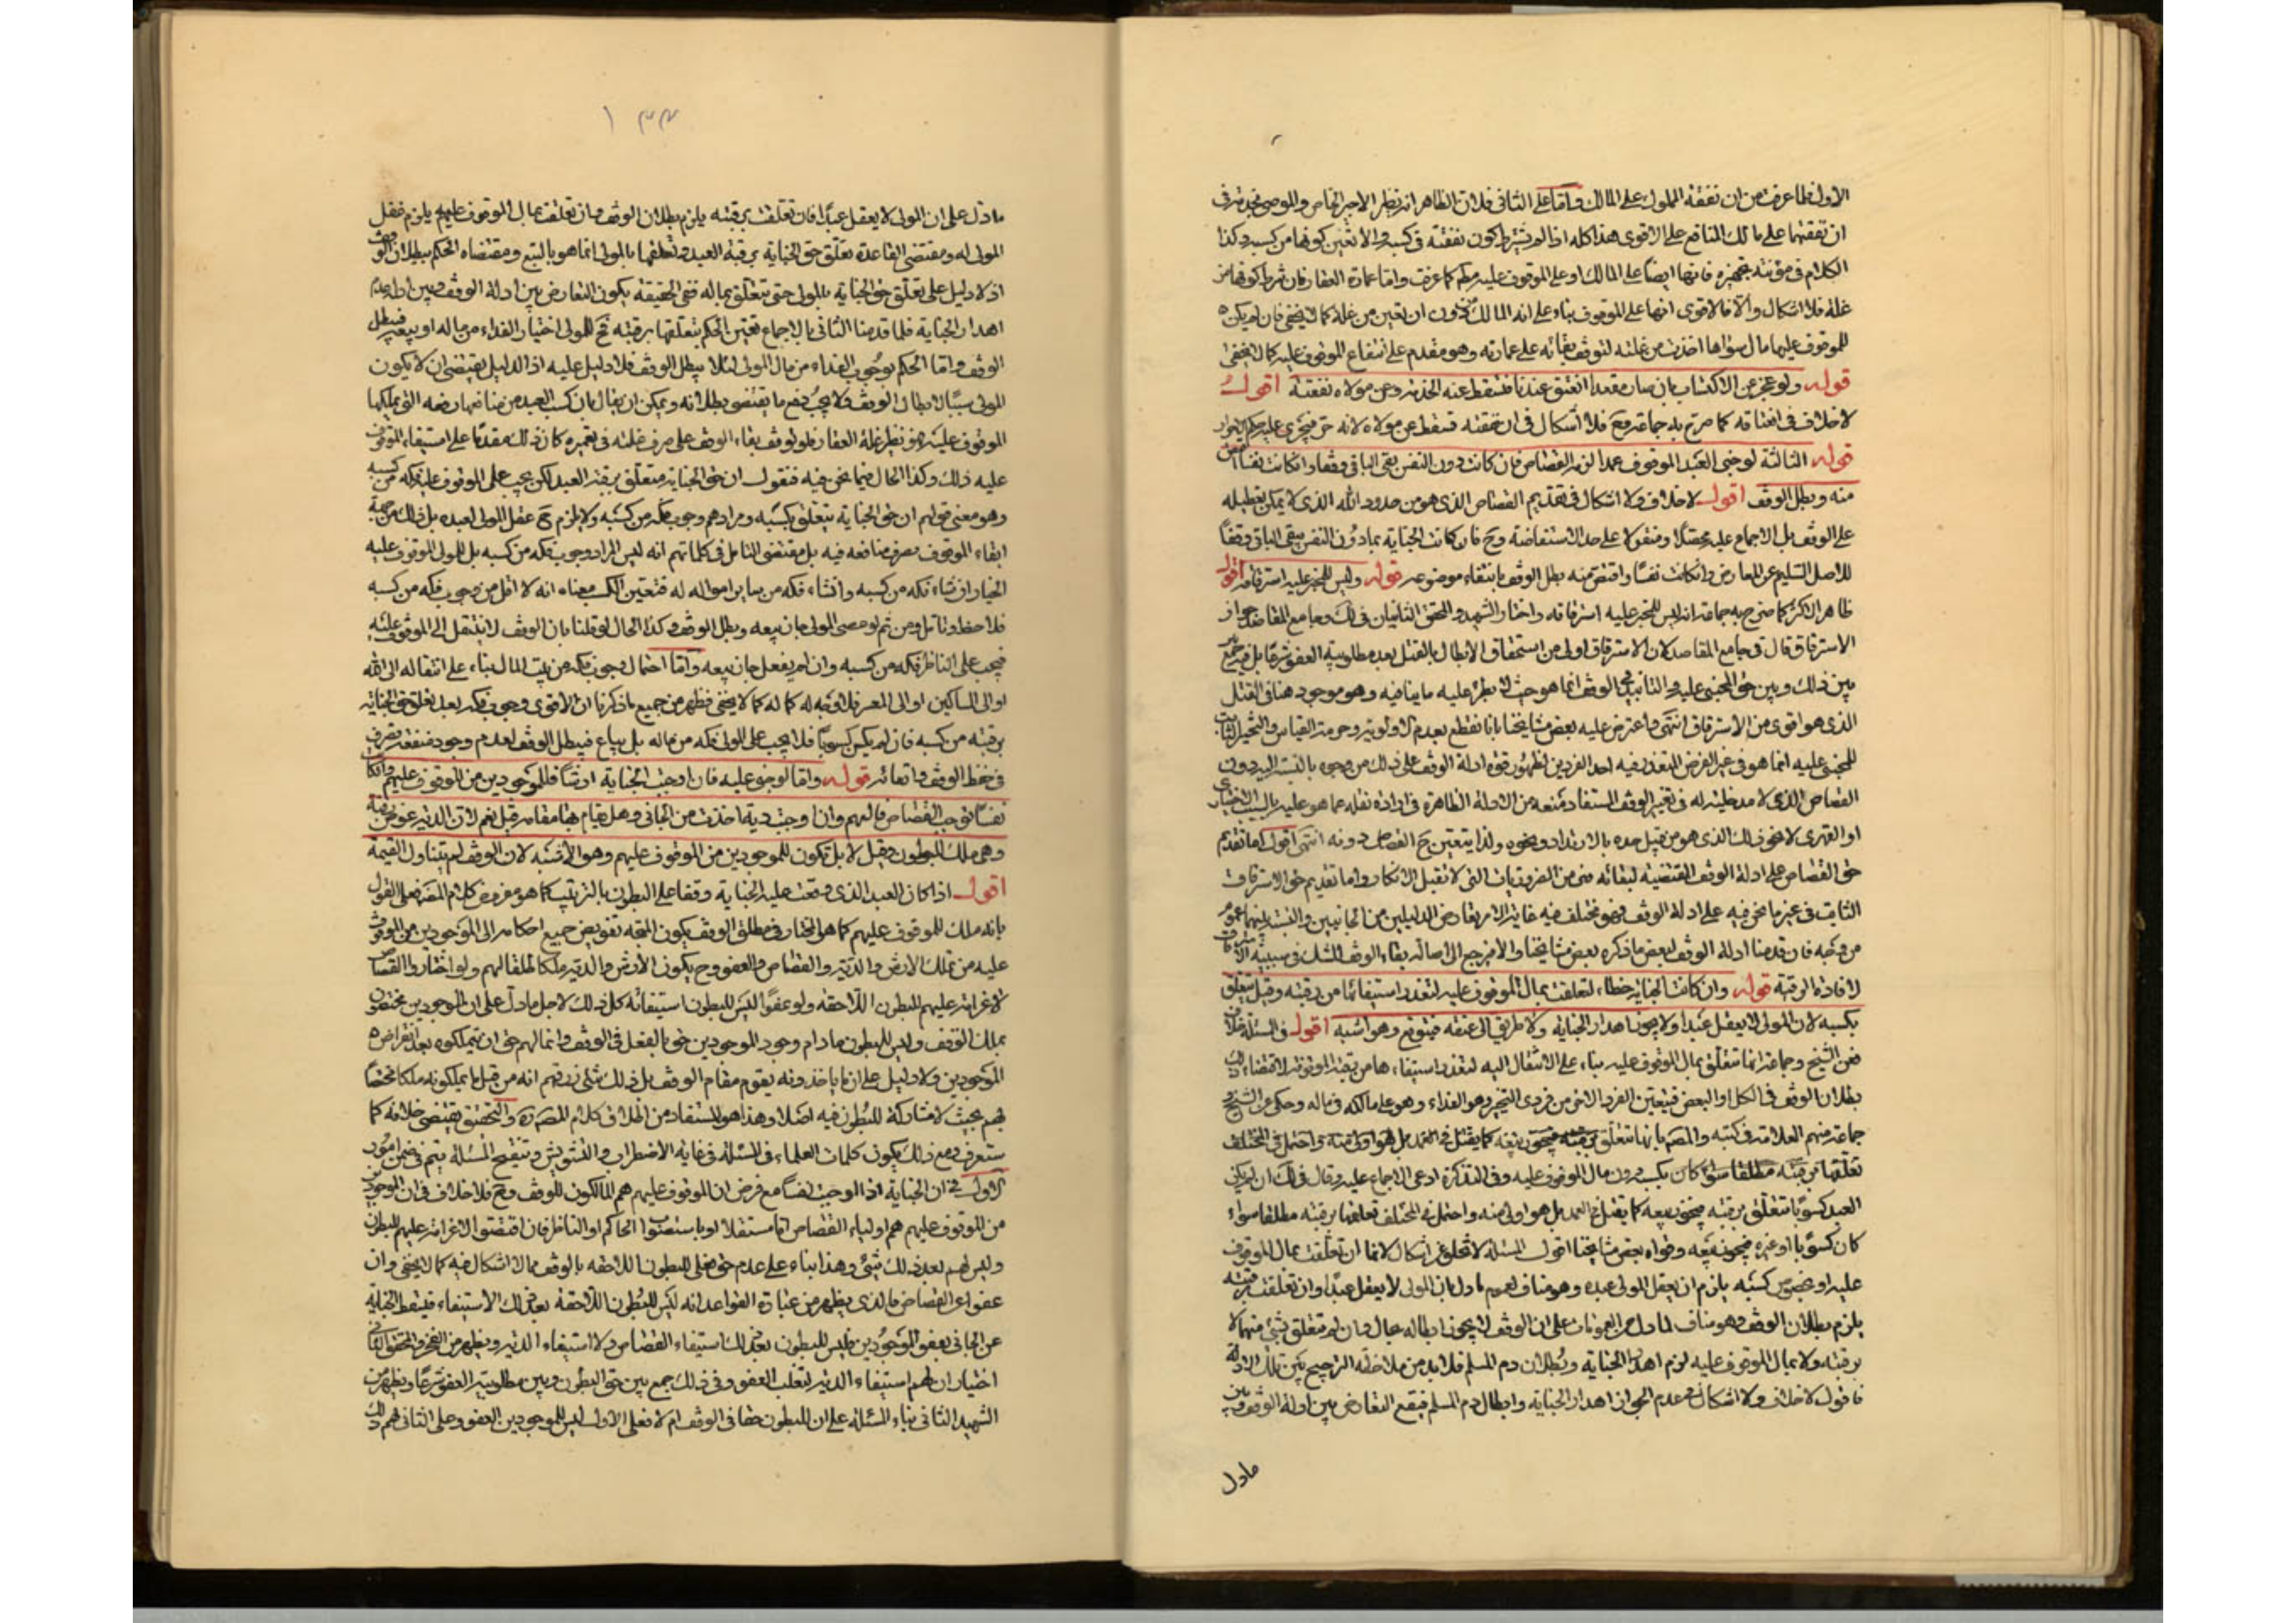 الاول فلما عرفت من ان نفقة المملوك على المالك واما على الثانى فلان الظاهر انه نظير الاجير الخاص والموصى بخدمته فى
ان نفقتهما على مالك المنافع على الاقوى هذا كله اذا لم يشترط كون نفقته فى كسبه والا تعين كونها من كسبه وكذا
الكلام فى مؤنة تجهيزه فانها ايضا على المالك او على الموقوف عليه كما عرفت واما عمارة العقار فان شرط كونها من
غلة فلا اشكال والا فالاقوى انها على الموقوف بناء على انه المالك ان تعين من غلة كما لا يخفى فان لم يكن
للموقوف عليها مال سواها اخذت من غلته لتوقف بقائه على عمارته وهو مقدم على انتفاع الموقوف عليه كما لا يخفى
قوله ولو عجز عن الاكتساب بان صار مقعدا انعتق عندنا فتسقط عنه الخدمة وعن مولاه نفقته اقول
لا خلاف فى انعتاقه كما صرح به جماعة وح فلا اشكال فى ان نفقته تسقط عن مولاه لانه حر فيجرى عليه حكم
قوله الثالثة لو جنى العبد الموقوف عمدا لزمه القصاص فان كانت دون النفس بقى الباقى وقفا وان كانت نفسا اقتص
منه وبطل الوقف اقول لا خلاف ولا اشكال فى تقديم القصاص الذى هو من حدود الله الذى لا يمكن تعطيله
على الوقف بل الاجماع عليه محصلا ومنقولا على حد الاستفاضة وح فان كانت الجناية بما دون النفس بقى الباقى وقفا
للاصل السليم عن المعارض وان كانت نفسا واقتص منه بطل الوقف بانتفاء موضوعه قوله وليس للمجنى عليه استرقاقه اقول
ظاهر الاكثر كما صرح به جماعة انه ليس للمجنى عليه استرقاقه واختار الشهيد والمحقق الثانيان فى لك وجامع المقاصد جواز
الاسترقاق قال فى جامع المقاصد لان الاسترقاق اولى من استحقاق الابطال بالقتل بعد مطلوبية العفو شرعا بل فيه جمع
بين ذلك وبين حق المجنى عليه والتابيد فى الوقف انما هو حيث لا يطرء عليه ما ينافيه وهو موجود هنا فى القتل
الذى هو اقوى من الاسترقاق انتهى واعترض عليه بعض مشايخنا بانا نقطع بعدم الاولوية وحرمة القياس والتخيير الثابت
للمجنى عليه انما هو فى غير الفرض المتعذر فيه احد الفردين لظهور قوة ادلة الوقف على ذلك من وجوه بالنسبة اليه دون
القصاص الذى لا مدخلية له فى تغيير الوقف المستفاد منعه من الادلة الظاهرة فى ارادة نقله عما هو عليه بالسبب الاختيارى
او القهرى لا نحو ذلك الذى هو من قبيل حده بالارتداد ونحوه ولذا يتعين ح القصاص دونه انتهى اقول اما تقديم
حق القصاص على ادلة الوقف المقتضية لبقائه فمن الضروريات التى لا تقبل الانكار واما تقديم حق الاسترقاق
الثابت فى غير ما نحن فيه على ادلة الوقف فهو مختلف فيه غاية الامر تعارض الدليلين من الجانبين والنسبة بينهما عموم
من وجه فان قدمنا ادلة الوقف لبعض ما ذكره بعض مشايخنا والا فمرجع الى اصالة بقاء الوقف للشك فى سببية الاسترقاق
لافادة الرقية قوله وان كانت الجناية خطاء تعلقت بمال الموقوف عليه لتعذر استيفائها من رقبته وقيل يتعلق
بكسبه لان المولى لا يعقل عبدا ولا يجوز اهدار الجناية ولا طريق الى عتقه فيتوقع وهو اشبه اقول فى المسئلة خلاف
فعن الشيخ وجماعة انها تتعلق بمال الموقوف عليه بناء على الانتقال اليه لتعذر استيفاءها من رقبته لاقتضاء ذلك
بطلان الوقف فى الكل او البعض فيتعين الفرد الاخر من فردى التخيير وهو الفداء وهو على مالكه فى ماله وحكى عن الشيخ و
جماعة منهم العلامة فى كتبه والمصم بانها تتعلق برقبته فيجوز بيعه كما يقتل فى العمد بل هو اولى منه واحتمل فى المختلف
تعلقها برقبته مطلقا سواء كان بكسب دون مال الموقوف عليه وفى التذكرة ادعى الاجماع عليه وقال فى لك ان لم يكن
العبد كسوبا تتعلق برقبته فيجوز بيعه كما يقتل فى العمد بل هو اولى منه واحتمل فى المختلف تعلقها برقبته مطلقا سواء
كان كسوبا او غيره فيجوز بيعه وقواه بعض مشايخنا اقول المسئلة لا تخلو عن اشكال لانها ان تعلقت بمال الموقوف
عليه او بخصوص كسبه يلزم ان يعقل المولى عبده وهو مناف لعموم ما دل بان المولى لا يعقل عبدا وان تعلقت برقبته
يلزم بطلان الوقف وهو مناف لما دل من العمومات على ان الوقف لا يجوز ابطاله بحال وان لم تتعلق بشئ منهما لا
برقبته ولا بمال الموقوف عليه لزم اهدار الجناية وبطلان دم المسلم فلابد من ملاحظة الترجيح بين تلك الادلة
فاقول لا خلاف ولا اشكال فى عدم الجواز اهدار الجناية وابطال دم المسلم فيقع التعارض بين ادلة الوقف وبين
مادل
١٣٣
ما دل على ان المولى لا يعقل عبدا فان تعلقت برقبته يلزم بطلان الوقف وان تعلقت بمال الموقوف عليهم يلزم عقل
المولى له ومقتضى القاعدة تعلق حق الجناية برقبة العبد وتعلقها بالمولى انما هو بالتبع ومقتضاه الحكم ببطلان الوقف
اذ لا دليل على تعلق حق الجناية بالمولى حتى تتعلق بماله ففى الحقيقة يكون التعارض بين ادلة الوقف وبين ادلة عدم
اهدار الجناية فلما قدمنا الثانى بالاجماع تعين الحكم بتعلقها برقبته فح للمولى اختيار الفداء من ماله او بيعه فيبطل
الوقف واما الحكم بوجوب الفداء من مال المولى لئلا يبطل الوقف فلا دليل عليه اذ الدليل يقتضى ان لا يكون
المولى سببا لابطال الوقف ولا يجب دفع ما يقتضى بطلانه ويمكن ان يقال بان كسب العبد من منافعه التى يملكها
الموقوف عليه هو نظير غلة العقار فلو توقف بقاء الوقف على صرف غلته فى تعميره كان ذلك مقدما على استيفاء الموقوف
عليه ذلك وكذا الحال فيما نحن فيه فنقول ان حق الجناية متعلق برقبة العبد لكن يجب على الموقوف عليه فكه من كسبه
وهو معنى قولهم ان حق الجناية يتعلق بكسبه ومرادهم وجوب فكه من كسبه ولا يلزم ح عقل المولى لعبده بل ذلك من جهة
ابقاء الموقوف بصرف منافعه فيه بل مقتضى التامل فى كلماتهم انه ليس المراد وجوب فكه من كسبه بل للمولى الموقوف عليه
الخيار ان شاء فكه من كسبه وان شاء فكه من ساير امواله له فتعين الكسب معناه انه لا اقل من وجوب فكه من كسبه
فلاحظ وتامل ومن ثم لو عصى المولى جاز بيعه وبطل الوقف وكذا الحال لو قلنا بان الوقف لا ينتقل الى الموقوف عليه
فيجب على الناظر فكه من كسبه وان لم يفعل جاز بيعه واما احتمال وجوب فكه من بيت المال بناء على انتقاله الى الله
او الى المساكين او الى المعسر فلا وجه له كما لا يخفى فظهر من جميع ما ذكرنا ان الاقوى وجوب فكه بعد تعلق حق الجناية
برقبته من كسبه فان لم يكن كسوبا فلا يجب على المولى فكه من ماله بل يباع فيبطل الوقف لعدم وجود منفعة تصرف
فى حفظ الوقف وابقائه قوله واما لو جنى عليه فان اوجبت الجناية ارشا فللموجودين من الموقوف عليهم وان كانت
نفسا توجب القصاص فاليهم وان اوجبت دية اخذت من الجانى وهل يقام بها مقامه قيل نعم لان الدية عوض رقبته
وهى ملك للبطون وقيل لا بل تكون للموجودين من الموقوف عليهم وهو الاشبه لان الوقف لم يتناول القيمة
اقول اذا كان العبد الذى وقعت عليه الجناية وقفا على البطون بالترتيب كما هو مفروض كلام المصنف فعلى القول
بانه ملك للموقوف عليهم كما هو المختار فى مطلق الوقف يكون المتجه تفويض جميع احكامه الى الموجودين من الموقوف
عليه من تملك الارش والدية والقصاص والعفو وح يكون الارش والدية ملكا طلقا لهم ولو اختاروا القصاص
لا غرامة عليهم للبطون اللاحقه ولو عفوا ليس للبطون استيفائه كل ذلك لاجل ما دل على ان الموجودين مختصون
بملك الوقف وليس للبطون ما دام وجود الموجودين حق بالفعل فى الوقف وانما لهم حق ان يتملكوه بعد انقراض
الموجودين ولا دليل على ان ما ياخذونه يقوم مقام الوقف بل ذلك شئ رزقهم انه من قبل ما يملكونه ملكا مختصا
بهم بحيث لا مشاركة للبطون فيه اصلا وهذا هو المستفاد من اطلاق كلام المصنف والتحقيق يقتضى خلافه كما
ستعرف ومع ذلك يكون كلمات العلماء فى المسئلة فى غاية الاضطراب والتشويش وتنقيح المسئلة يتم فى ضمن امور
الاول فى ان الجناية اذا اوجبت نفسا مع فرض ان الموقوف عليهم هم المالكون للوقف وح فلا خلاف فى ان الموجودين
من الموقوف عليهم هم اولياء القصاص اما مستقلا او باستصواب الحاكم او الناظر فان اقتصوا لا غرامة عليهم للبطون
وليس لهم بعد ذلك شئ وهذا بناء على عدم حق فعلى للبطون اللاحقة بالوقف مما لا اشكال فيه كما لا يخفى وان
عفوا عن القصاص فالذى يظهر من عبارة القواعد انه ليس للبطون اللاحقة بعد ذلك الاستيفاء فيسقط الجناية
عن الجانى بعفو الموجودين وليس للبطون بعد ذلك استيفاء القصاص ولا استيفاء الدية ويظهر من الفخر والمحقق الثانى
اختيار ان لهم استيفاء الدية لتغلب العفو وفى ذلك جمع بين حق البطون وبين مطلوبية العفو شرعا ويظهر من
الشهيد الثانى بناء المسئلة على ان للبطون حقا فى الوقف ام لا فعلى الاول ليس للموجودين العفو وعلى الثانى لهم ذلك